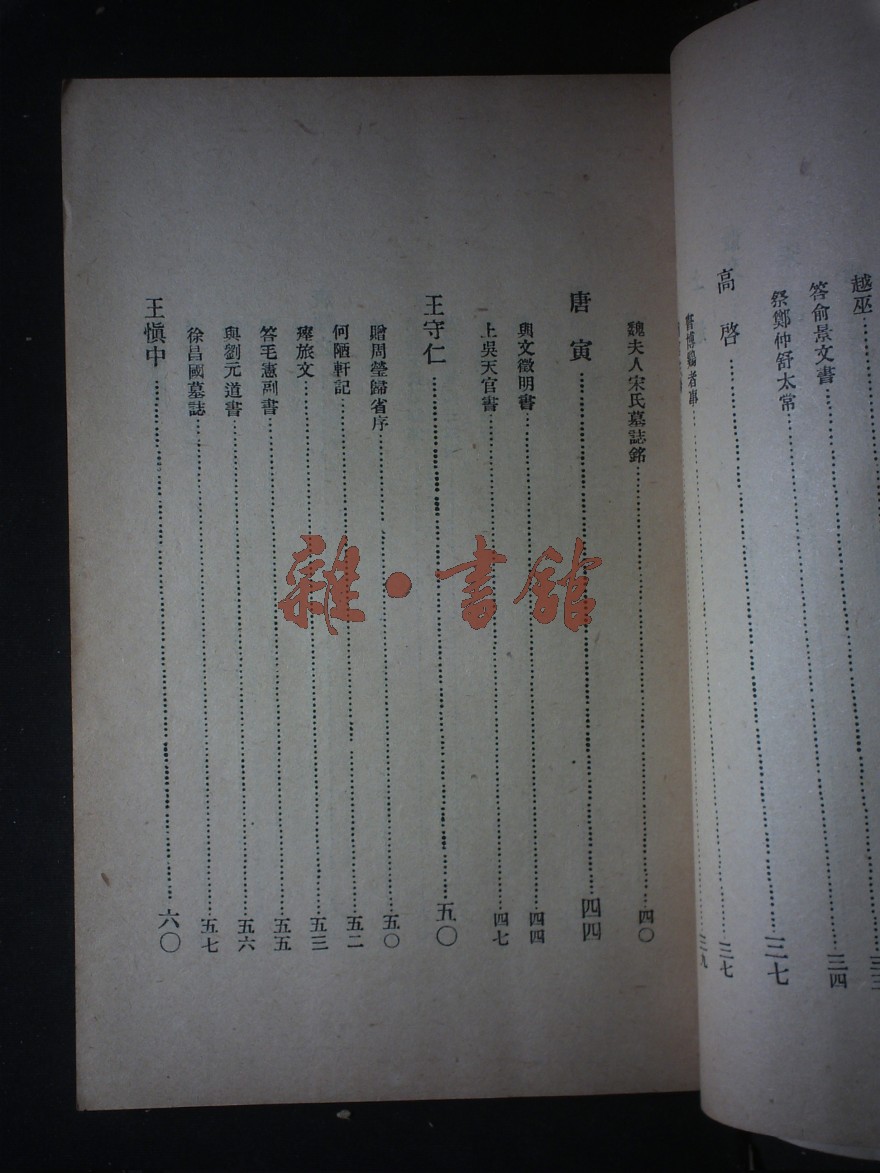 越巫
答俞景文書⋯⋯三四
祭鄭仲舒太常⋯⋯三七
高啓⋯⋯三七
書博鷄者事⋯⋯三九
魏夫人宋氏墓誌銘⋯⋯四〇
唐寅⋯⋯四四
與文徵明書⋯⋯四四
上吳天官書⋯⋯四七
王守仁⋯⋯五〇
贈周瑩歸省序⋯⋯五〇
何陋軒記⋯⋯五二
瘞旅文⋯⋯五三
答毛憲副書⋯⋯五五
與劉元道書⋯⋯五六
徐昌國墓誌⋯⋯五七
王慎中⋯⋯六〇
雜·書館